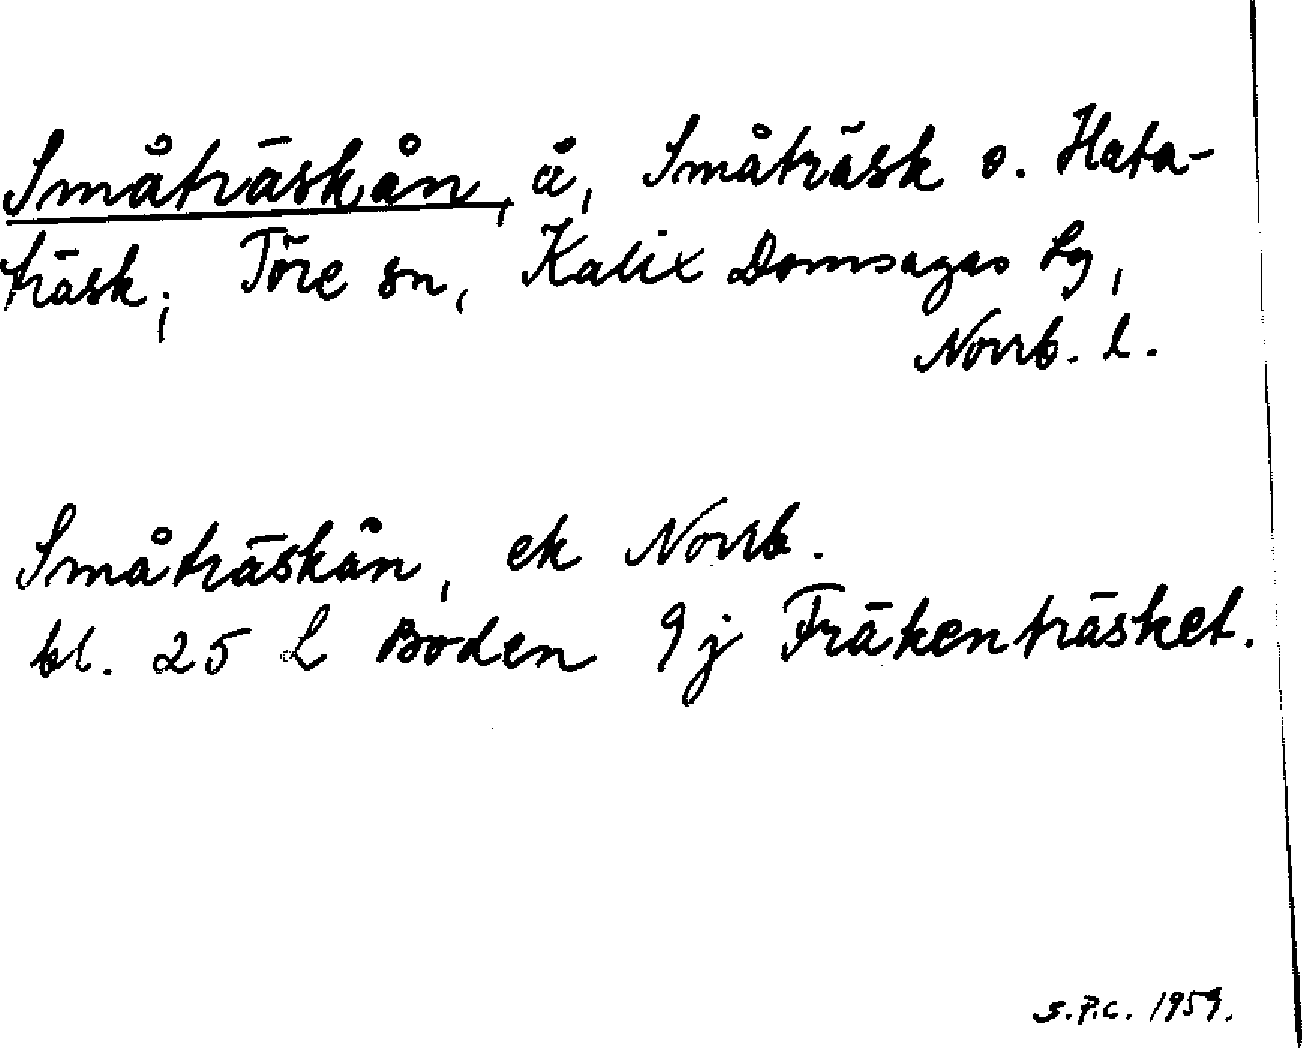 Småträskån, å, Småträsk o. Hata-
träsk, Töre sn, Kalix Domsagas lg,
Norrb. l.
Småträskån, ek Norrb.
bl. 25 L Boden 9j Fräkenträsket.
S.P.C. 1959.